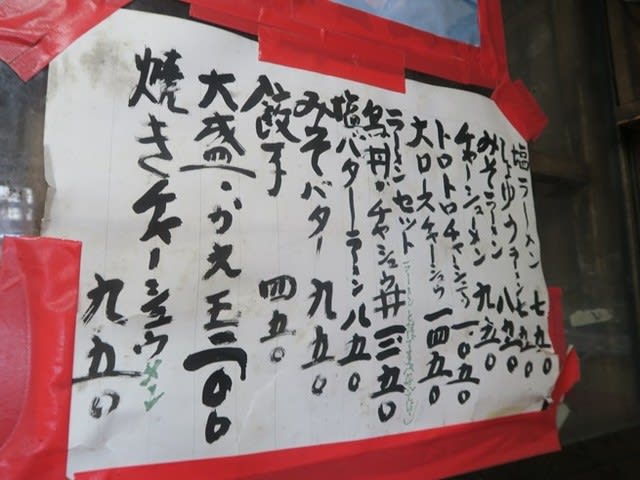 塩ラーメン 七五〇
しょゆうラーメン 七五〇
みそラーメン 八五〇
チャーシューメン 九五〇
トロトロチャーシュウ 一〇五〇
大ロースチャーシュウ 一四五〇
ラーメンセット
鳥丼かチャシュウ丼 一三五〇
塩バターラーメン 八五〇
みそバター 九五〇
餃子 四五〇
大盛・がえ玉 二〇〇
焼きチャーシュウメン 九五〇